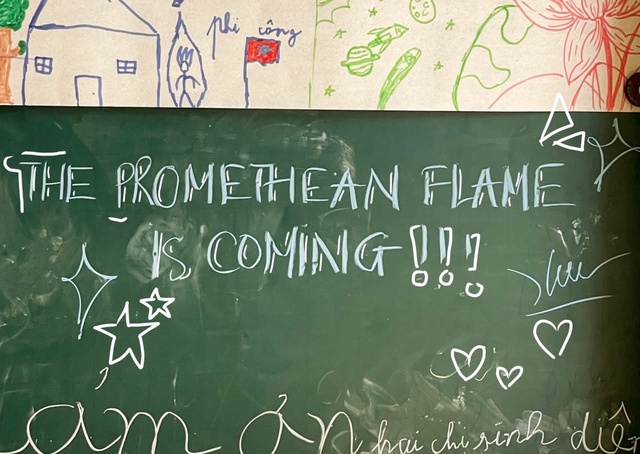 phi công
THE PROMETHEAN FLAME
IS COMING!!!
ảm ơn hai chị sinh